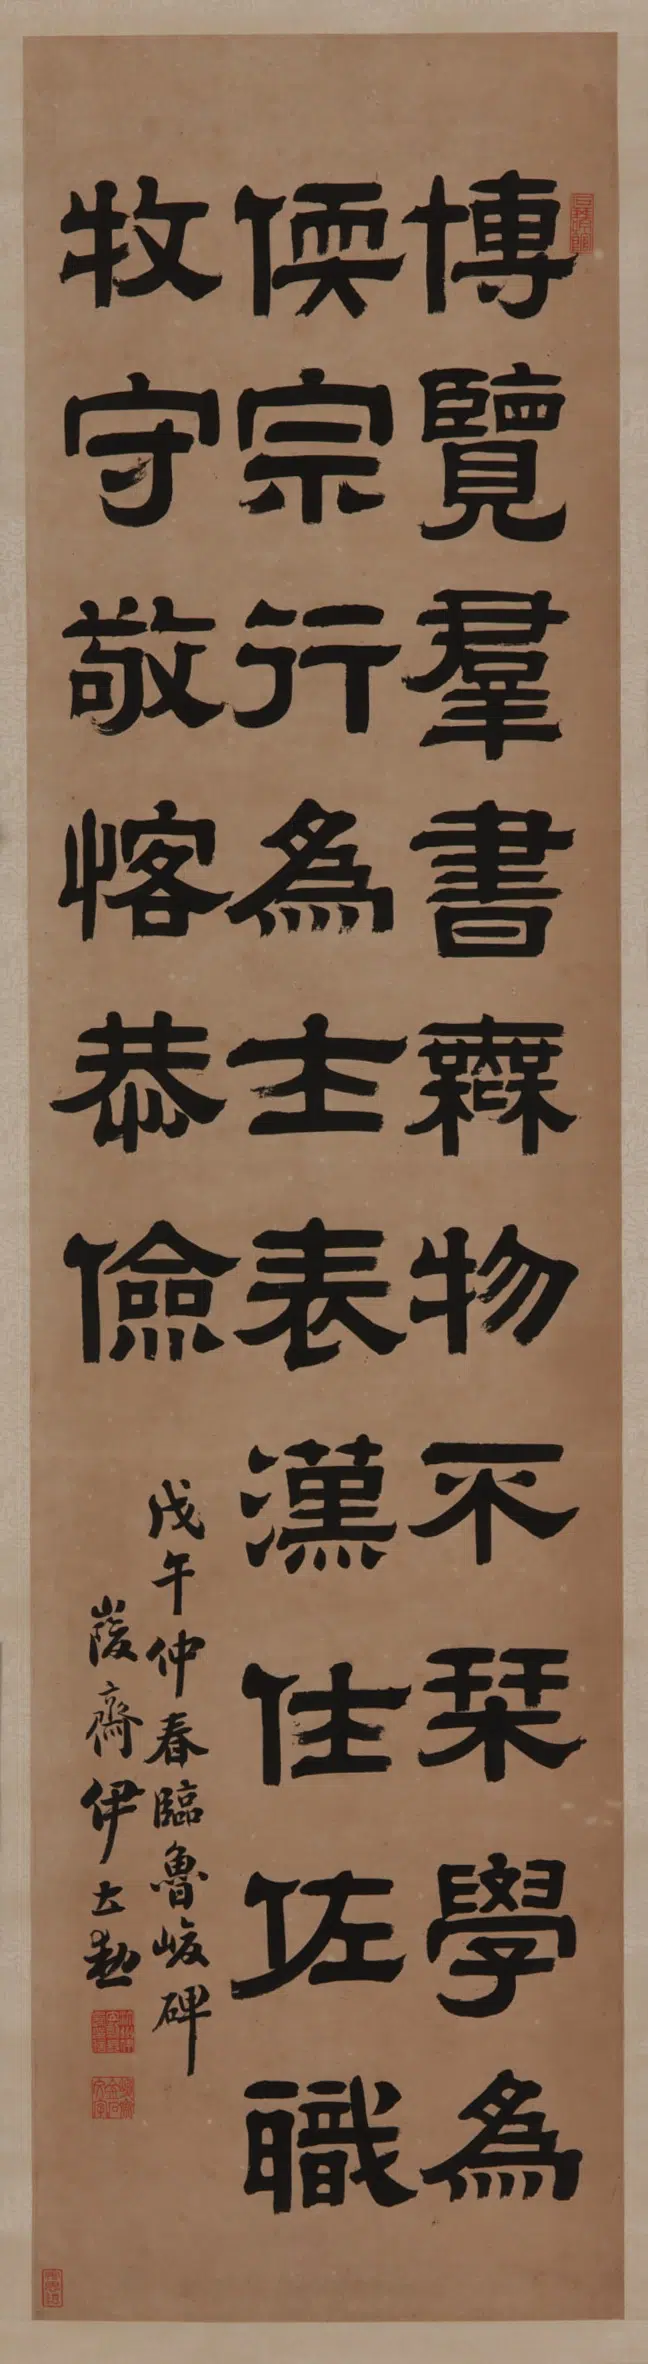 博覽羣書無物不栞學為
偄宗行為士表漢住佐職
牧守敬愘恭儉
戊午仲春臨魯峻碑
峻齋伊立勳